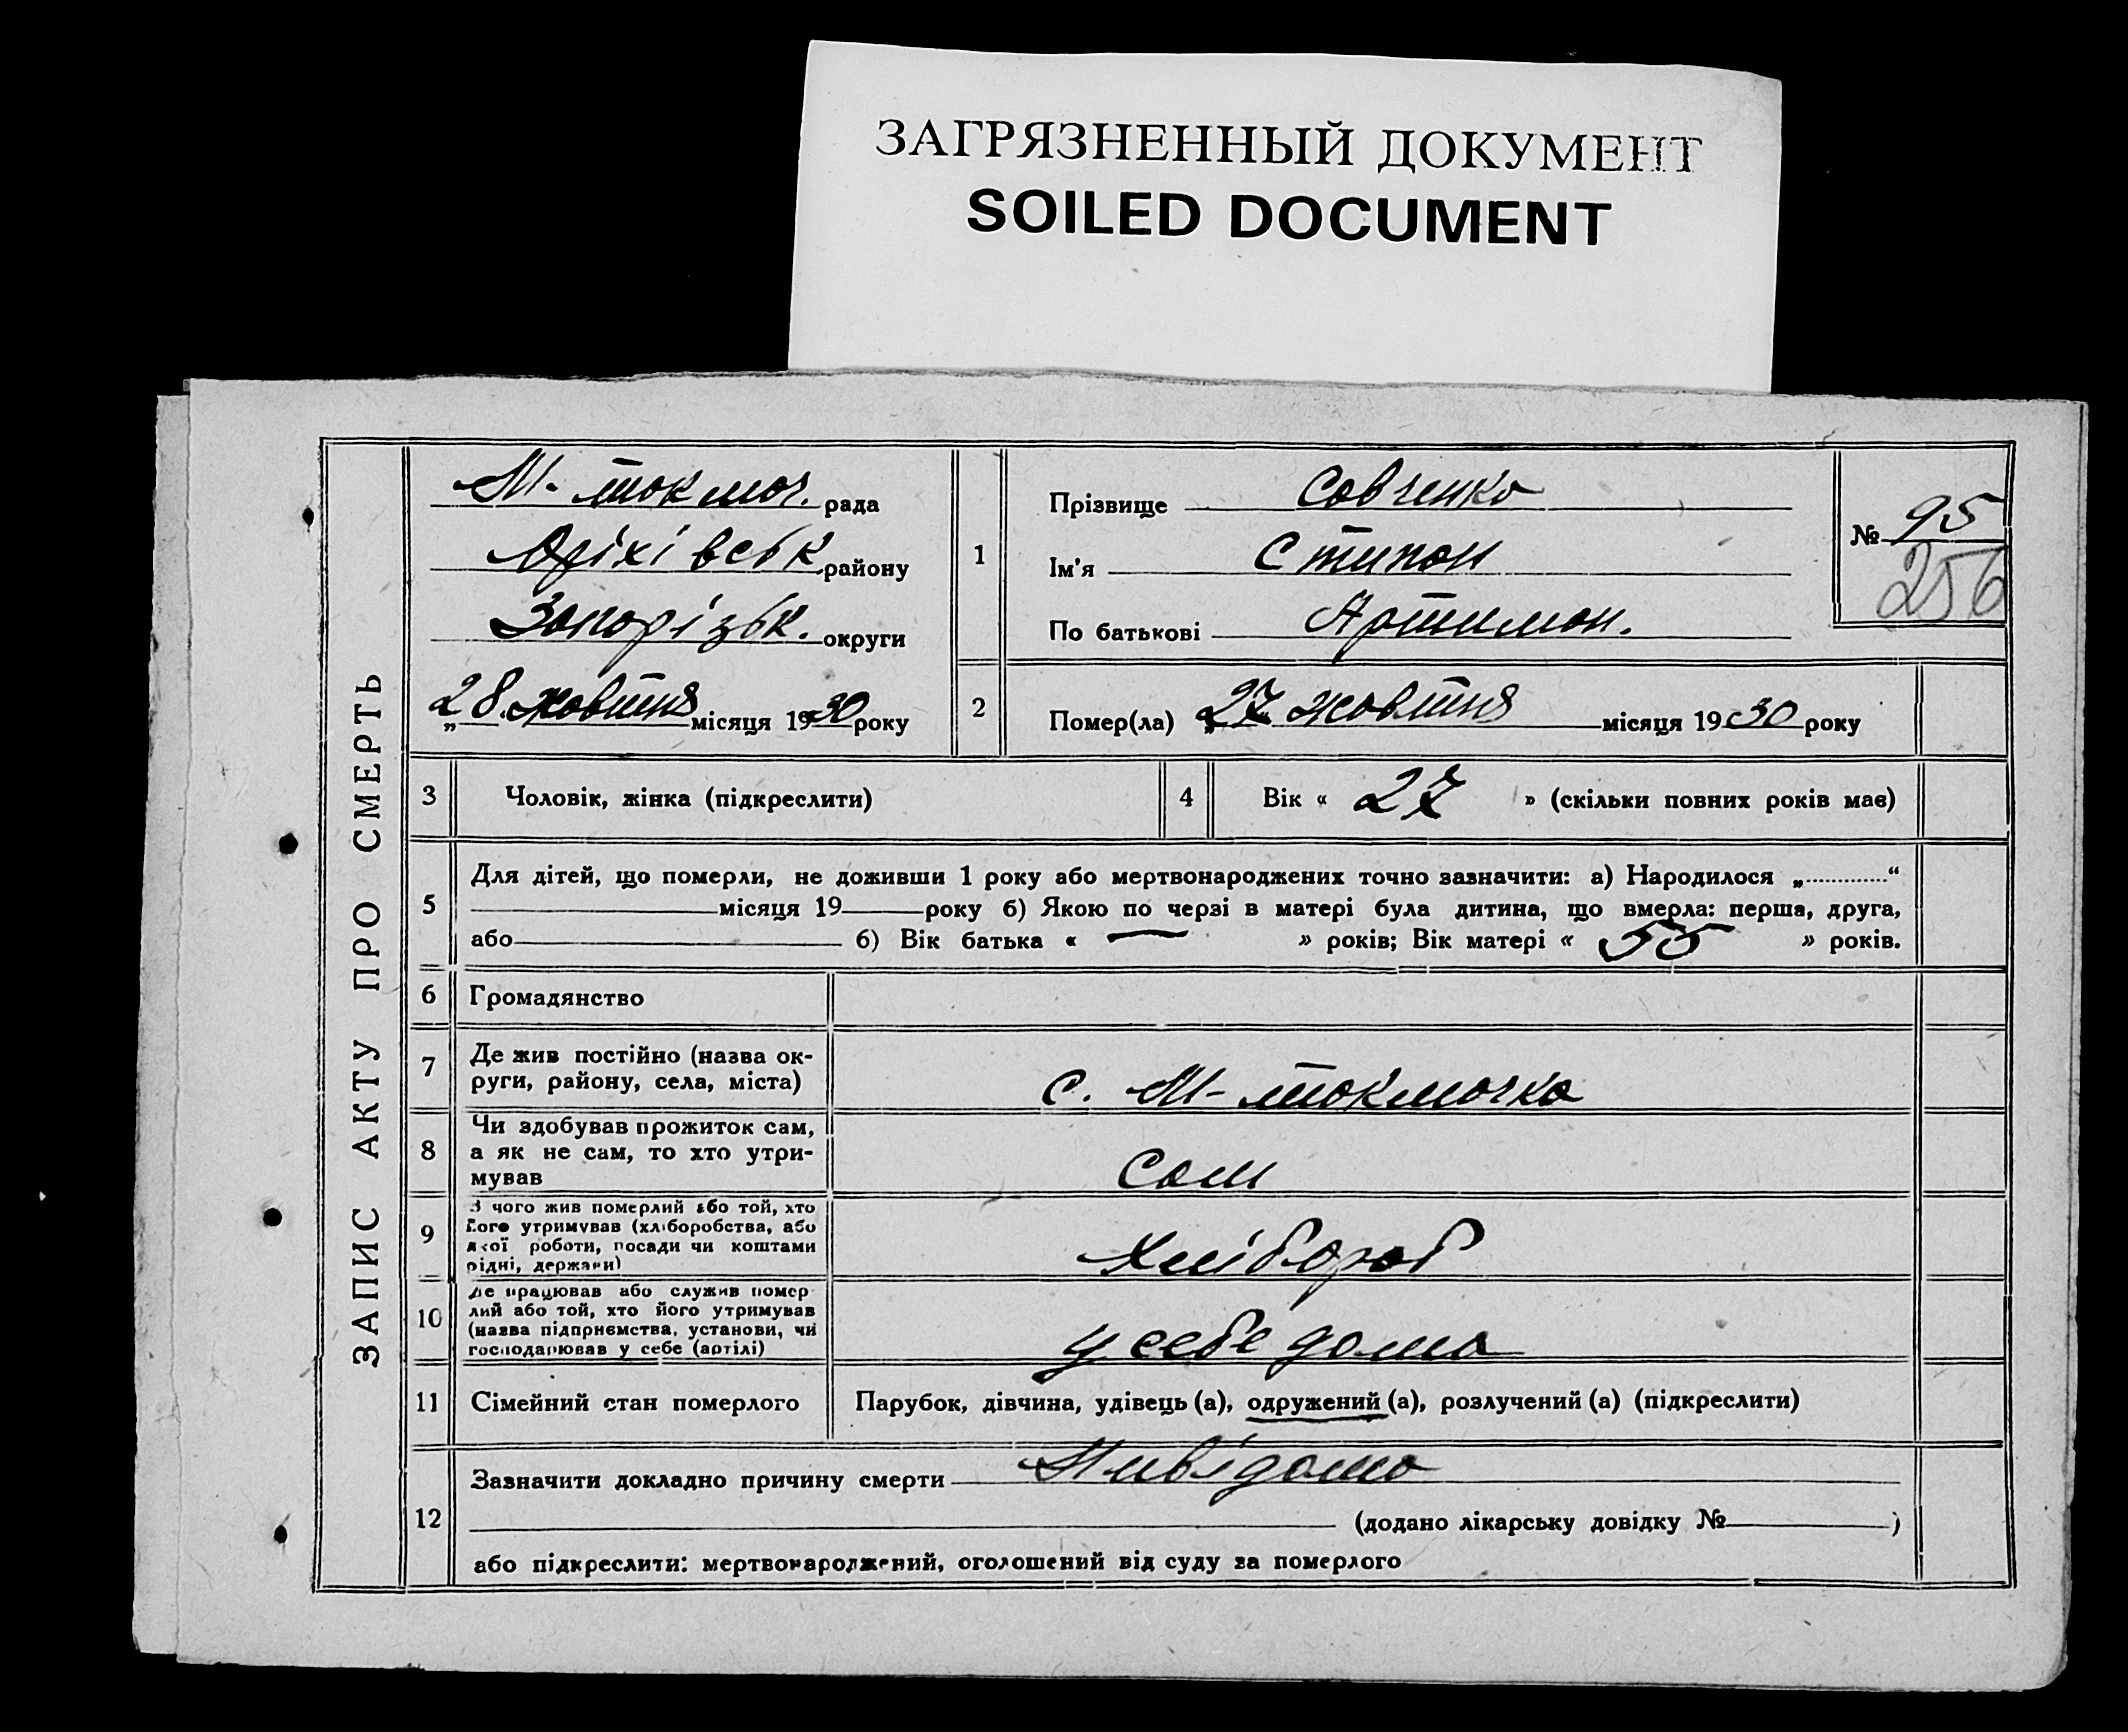 ЗАГРЯЗНЕННЫЙ ДОКУМЕНТ
SOILED DOCUMENT
ЗАПИС АКТУ ПРО СМЕРТЬ
М-токмач. рада
Оріхівськ району
Запорізьк. округи
„28 жовтня місяця 1930 року
1
Прізвище Савченко
Ім'я Стипан
По батькові Артимон.
№ 95
256
2 Помер(ла) „27 жовтня місяця 1930 року
3 Чоловік, жінка (підкреслити)
4 Вік « 27 » (скільки повних років має)
5
Для дітей, що померли, не доживши 1 року або мертвонароджених точно зазначити: а) Народилося „............“
місяця 19 року б) Якою по черзі в матері була дитина, що вмерла: перша, друга,
або б) Вік батька « — » років; Вік матері « 55 » років.
6 Громадянство
7 Де жив постійно (назва ок-
руги, району, села, міста)
с. М-токмачка
8 Чи здобував прожиток сам,
а як не сам, то хто утри-
мував
Сам
9 З чого жив померлий або той, хто
його утримував (хліборобства, або
якої роботи, посади чи коштами
рідні, держави)
Хлібороб
10 Де працював або служив помер
лий або той, хто його утримував
(назва підприємства, установи, чи
господарював у себе (артілі)
у себе дома
11 Сімейний стан померлого Парубок, дівчина, удівець (а), одружений (а), розлучений (а) (підкреслити)
12 Зазначити докладно причину смерти Нивідомо
(додано лікарську довідку № )
або підкреслити: мертвонароджений, оголошений від суду за померлого